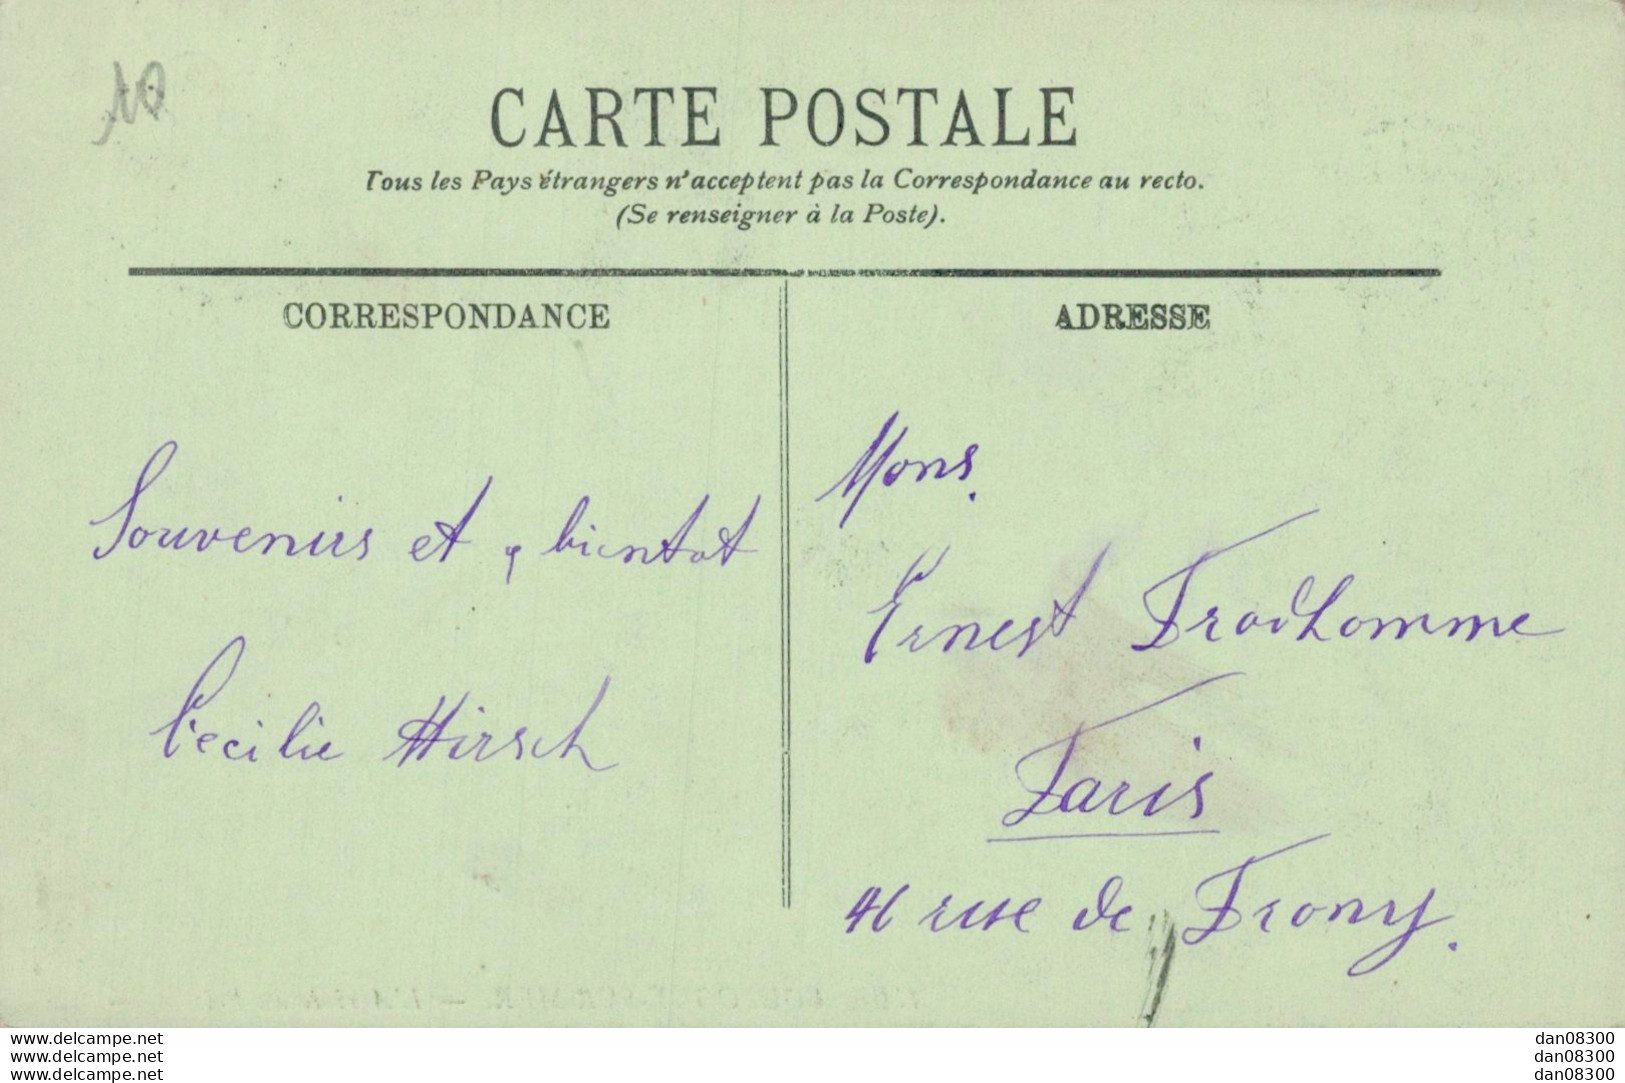 10
CARTE POSTALE
Tous les Pays étrangers n'acceptent pas la Correspondance au recto.
(Se renseigner à la Poste).
CORRESPONDANCE
ADRESSE
Souvenirs et à bientot
Cecilie Hirsch
Mons.
Ernest Prodhomme
Paris
46 rue de Prony.
www.delcampe.net
www.delcampe.net
www.delcampe.net
dan08300
dan08300
dan08300